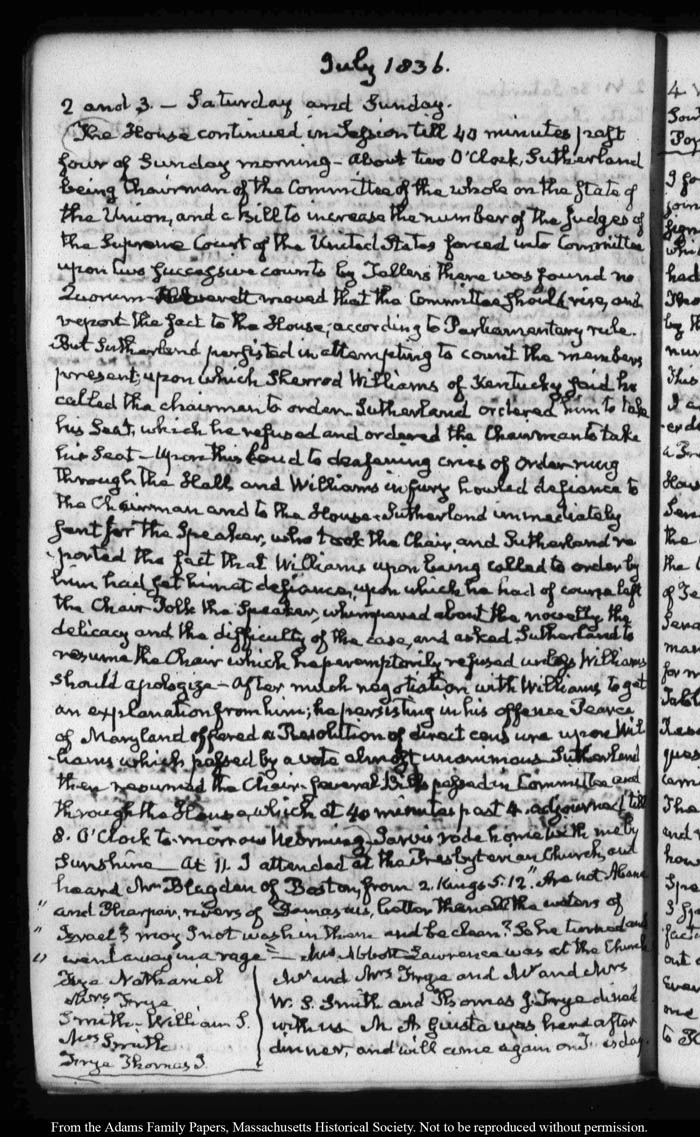 July 1836.
2 and 3. — Saturday and Sunday.
The House continued in Session till 40 minutes past
four of Sunday morning — about two O'Clock, Sutherland
being Chairman of the Committee of the whole on the State of
the Union, and a Bill to increase the number of the Judges of
the Supreme Court of the United States forced into Committee
upon two successive counts by Tellers there was found no
Quorum — Everett moved that the Committee should rise, and
report the fact to the House, according to Parliamentary rule.
But Sutherland persisted in attempting to count the members
present, upon which Sherrod Williams of Kentucky said he
called the chairman to order. Sutherland ordered him to take
his Seat, which he refused and ordered the Chairman to take
his Seat — Upon this loud to deafening cries of order rung
through the Hall and Williams in fury howled defiance to
the Chairman and to the House. Sutherland immediately
sent for the Speaker, who took the Chair, and Sutherland re
-ported the fact that Williams upon being called to order by
him had set him at defiance, upon which he had of course left
the Chair. Polk the Speaker, whimpered about the novelty the
delicacy and the difficulty of the case, and asked Sutherland to
resume the Chair which he peremptorily refused unless Williams
should apologize — After much negotiation with Williams to get
an explanation from him; he persisting in his offence Pearce
of Maryland offered a Resolution of direct censure upon Wil
-liams which passed by a vote almost unanimous Sutherland
then resumed the Chair. Several Bills passed in Committee and
through the House, which at 40 minutes past 4. adjourned till
8. O'Clock to-morrow Morning, Jarvis rode home with me by
Sunshine — At 11. I attended at the Presbyterian Church, and
heard Mr Blagden of Boston, from 2. Kings 5. 12. "Are not Abana
" and Pharpar, rivers of Damascus, better than all the waters of
" Israel? may I not wash in them and be clean? So he turned and
" went away in a rage" — Mrs Abbott Lawrence was at the Church
Frye Nathaniel
Mrs Frye
Smith. William S.
Mrs Smith
Frye Thomas J.
Mr and Mrs Frye and Mr and Mrs
W. S. Smith and Thomas J. Frye dined
with us. M. A. Giusta was here after
dinner, and will come again on Tuesday.
4
had
by
the
the
of
and
how
one
to
From the Adams Family Papers, Massachusetts Historical Society. Not to be reproduced without permission.